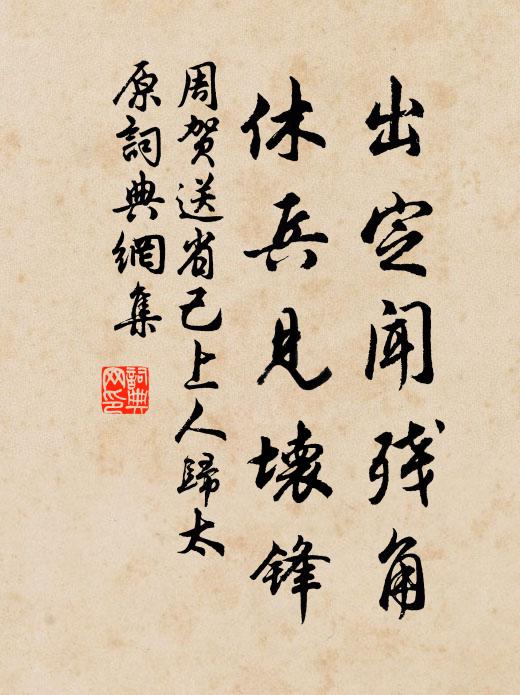 出定闻残角
休兵見壊锋
周贺送省己上人歸太
原詞典網集
詞典網印